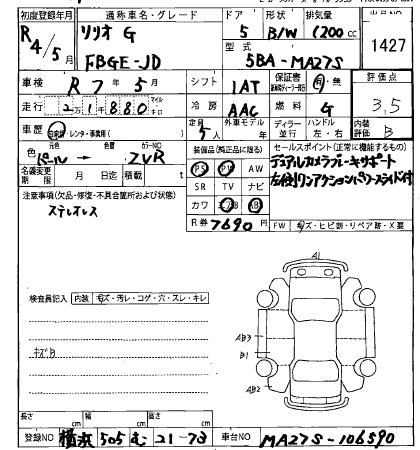 初度登録年月 通称車名・グレード ドア 形状 排気量
R4/5月 ソリオ G 5 B/W 1200cc 1427
FBGE-JD 型式 5BA-MA27S
車検 R7年5月 シフト 1AT 保証書 有・無 評価点
走行 21880 マイル キロ 冷房 AAC 燃料 G 3,5
車歴 自家用・レンタ・事業用( ) 定員 5人 外車モデル 年 ディーラー 並行 ハンドル 左・右 内装評価 B
色 元色 パール → 色替 カラーNO ZVR
名義変更期限 月 日迄 積載 t
装備品(純正品に限る)
PS PW
SR TV ナビ
カワ エアB AB
R券 7690円
セールスポイント(正常に機能するもの)
デュアルカメラブレーキサポート
左右側リンアクションパワースライド付
注意事項(欠品・修復・不具合箇所および状態)
ステレオレス
FW キズ・ヒビ割・リペア跡・X要
A1
検査員記入 内装 キズ・汚レ・コゲ・穴・スレ・キレ
キズB
AB3
B1
AB2
長さ cm 幅 cm 高さ cm
登録NO 横浜 505 む 21-73 車台NO MA27S-106590